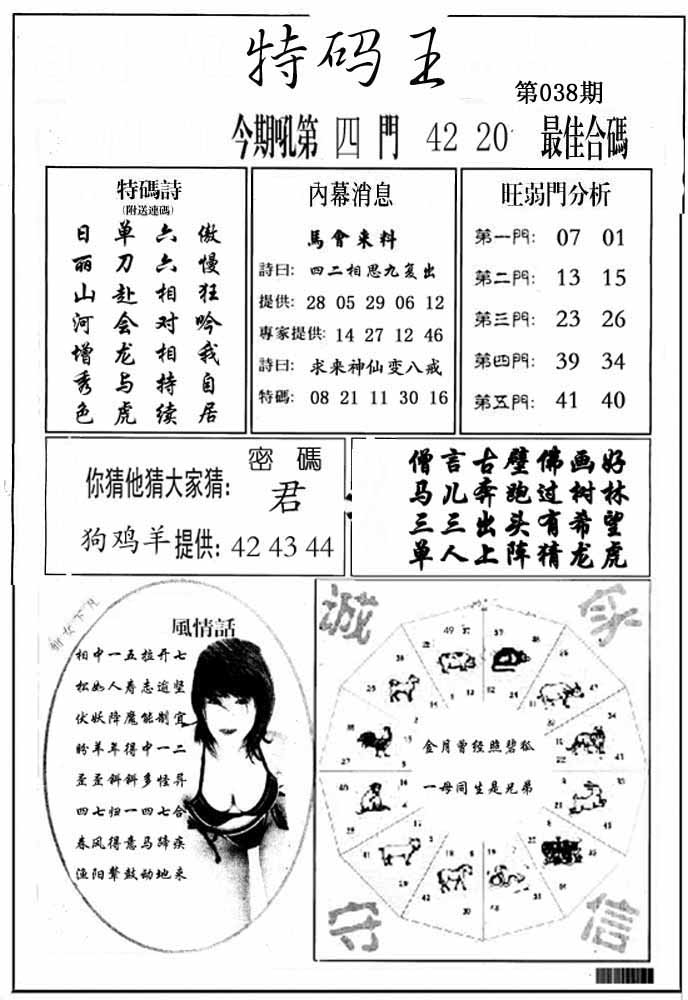 特码王
第038期
今期吼第 四 門 42 20 最佳合碼
特碼詩
(附送連碼)
日 单 六 傲
丽 刀 六 慢
山 赴 相 狂
河 会 对 吟
增 龙 相 我
秀 与 持 自
色 虎 续 居
內幕消息
馬會来料
詩曰: 四二相思九复出
提供: 28 05 29 06 12
專家提供: 14 27 12 46
詩曰: 求来神仙变八戒
特碼: 08 21 11 30 16
旺弱門分析
第一門: 07 01
第二門: 13 15
第三門: 23 26
第四門: 39 34
第五門: 41 40
密 碼
你猜他猜大家猜: 君
狗鸡羊提供: 42 43 44
僧言古壁佛画好
马儿奔跑过树林
三三出头有希望
单人上阵猜龙虎
風情話
相中一五拉开七
人寿志逾坚
伏妖降魔能制宜
盼羊年得中一二
歪歪斜斜多怪异
四七归一四七合
春风得意马蹄疾
渔阳鼙鼓动地来
诚 家
金月曾经照碧狐
一母同生是兄弟
守 信